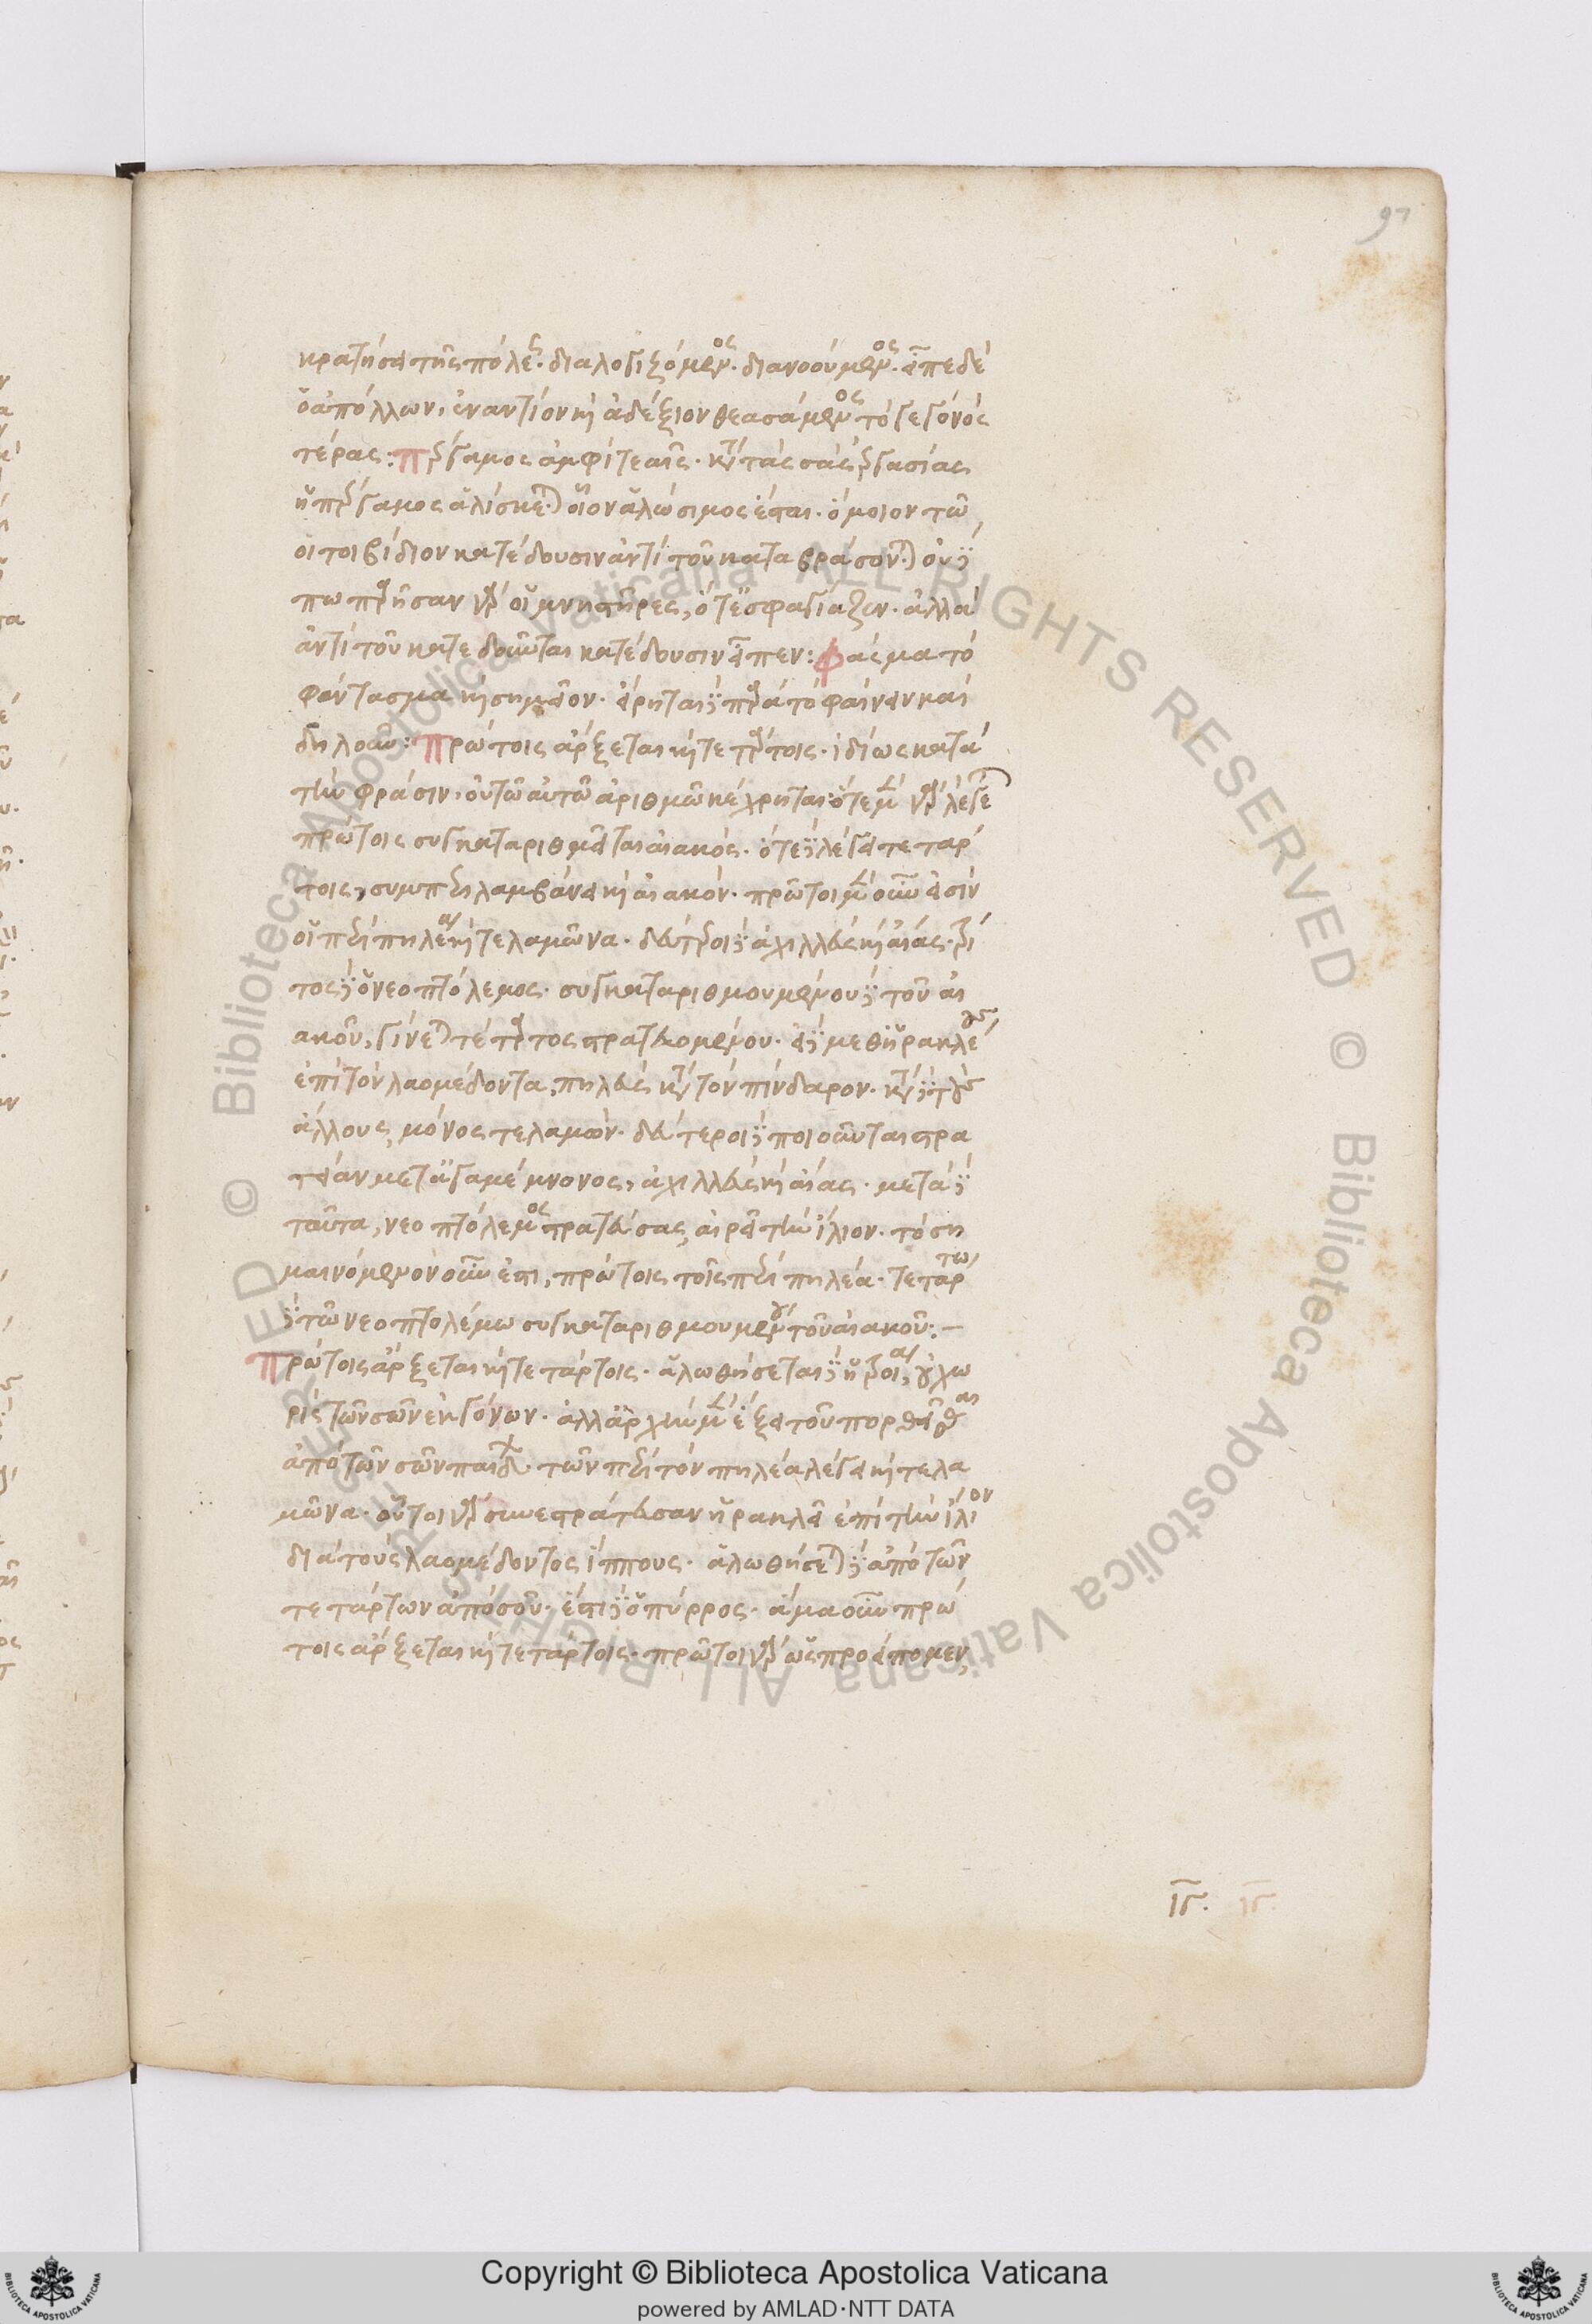 97
κρατήσει τῆς πόλεως. διαλογιζόμενος. διανοούμενος. εἶπε δὲ
ὁ ἀπόλλων, ἐναντίον καὶ ἀδέξιον θεασάμενος τὸ γεγονὸς
τέρας: πέργαμος ἀμφὶ τεαῖς. κατὰ τὰς σὰς ἐργασίας
ἡ πέργαμος ἁλίσκεται. οἷον ἁλώσιμος ἔσται. ὅμοιον τῶ
οἵ τοι βίοτον κατέδουσιν ἀντὶ τοῦ καταβρώσονται. οὐ δέ
πω παρῆσαν γὰρ οἱ μνηστῆρες, ὅτε ἐσφαγίαζεν. ἀλλὰ
ἀντὶ τοῦ κατεδοῦνται κατέδουσιν εἶπεν: φάσμα τὸ
φάντασμα καὶ σημεῖον. εἴρηται δὲ παρὰ τὸ φαίνειν καὶ
δηλοῦν: πρώτοις ἄρξεται καὶ τετράτοις. ἰδίως κατὰ
τὴν φράσιν, οὐ τῶ αὐτῶ ἀριθμῶ κέχρηται. ὅτε μὲν γὰρ λέγεται
πρώτοις συγκαταριθμεῖται αἰακός. ὅτε δὲ λέγει τετάρ
τοις, συμπεριλαμβάνει καὶ αἰακόν. πρῶτοι μὲν οὖν εἰσὶν
οἱ περὶ πηλέα καὶ τελαμῶνα. δεύτεροι δὲ ἀχιλλεὺς καὶ αἴας. τρί
τος δὲ ὁ νεοπτόλεμος. συγκαταριθμουμένου δὲ τοῦ αἰ
ακοῦ, γίνεται τέταρτος στρατευομένου. εἰ δὲ μεθ ἡρακλέους
ἐπὶ τὸν λαομέδοντα, πηλεὺς κατὰ τὸν πίνδαρον. κατὰ δὲ τοὺς
ἄλλους, μόνος τελαμών. δεύτεροι δὲ ποιοῦνται στρα
τείαν μετὰ ἀγαμέμνονος, ἀχιλλεὺς καὶ αἴας. μετὰ δὲ
ταῦτα, νεοπτόλεμος στρατεύσας, αἱρεῖ τὴν ἴλιον. τὸ ση
μαινόμενον οὖν ἐστι, πρώτοις τοῖς περὶ πηλέα. τετάρτω
δὲ τῶ νεοπτολέμω συγκαταριθμουμένου τοῦ αἰακοῦ:—
πρώτοις ἄρξεται καὶ τετάρτοις. ἁλωθήσεται δὲ ἡ τροία, οὐ χω
ρὶς τῶν σῶν ἐκγόνων. ἀλλ ἀρχὴν μὲν ἕξει τοῦ πορθεῖσθαι
ἀπὸ τῶν σῶν παίδων. τῶν περὶ τὸν πηλέα λέγει καὶ τελα
μῶνα. οὗτοι γὰρ συνεστράτευσαν ἡρακλεῖ ἐπὶ τὴν ἴλιον
διὰ τοὺς λαομέδοντος ἵππους. ἁλωθήσεται δὲ ἀπὸ τῶν
τετάρτων ἀπὸ σοῦ. ἔστι δὲ ὁ πύρρος. ἅμα οὖν πρώ
τοις ἄρξεται καὶ τετάρτοις. πρῶτοι γὰρ ὡς προείπομεν,
ιγ. ιγ.
Copyright © Biblioteca Apostolica Vaticana
powered by AMLAD·NTT DATA